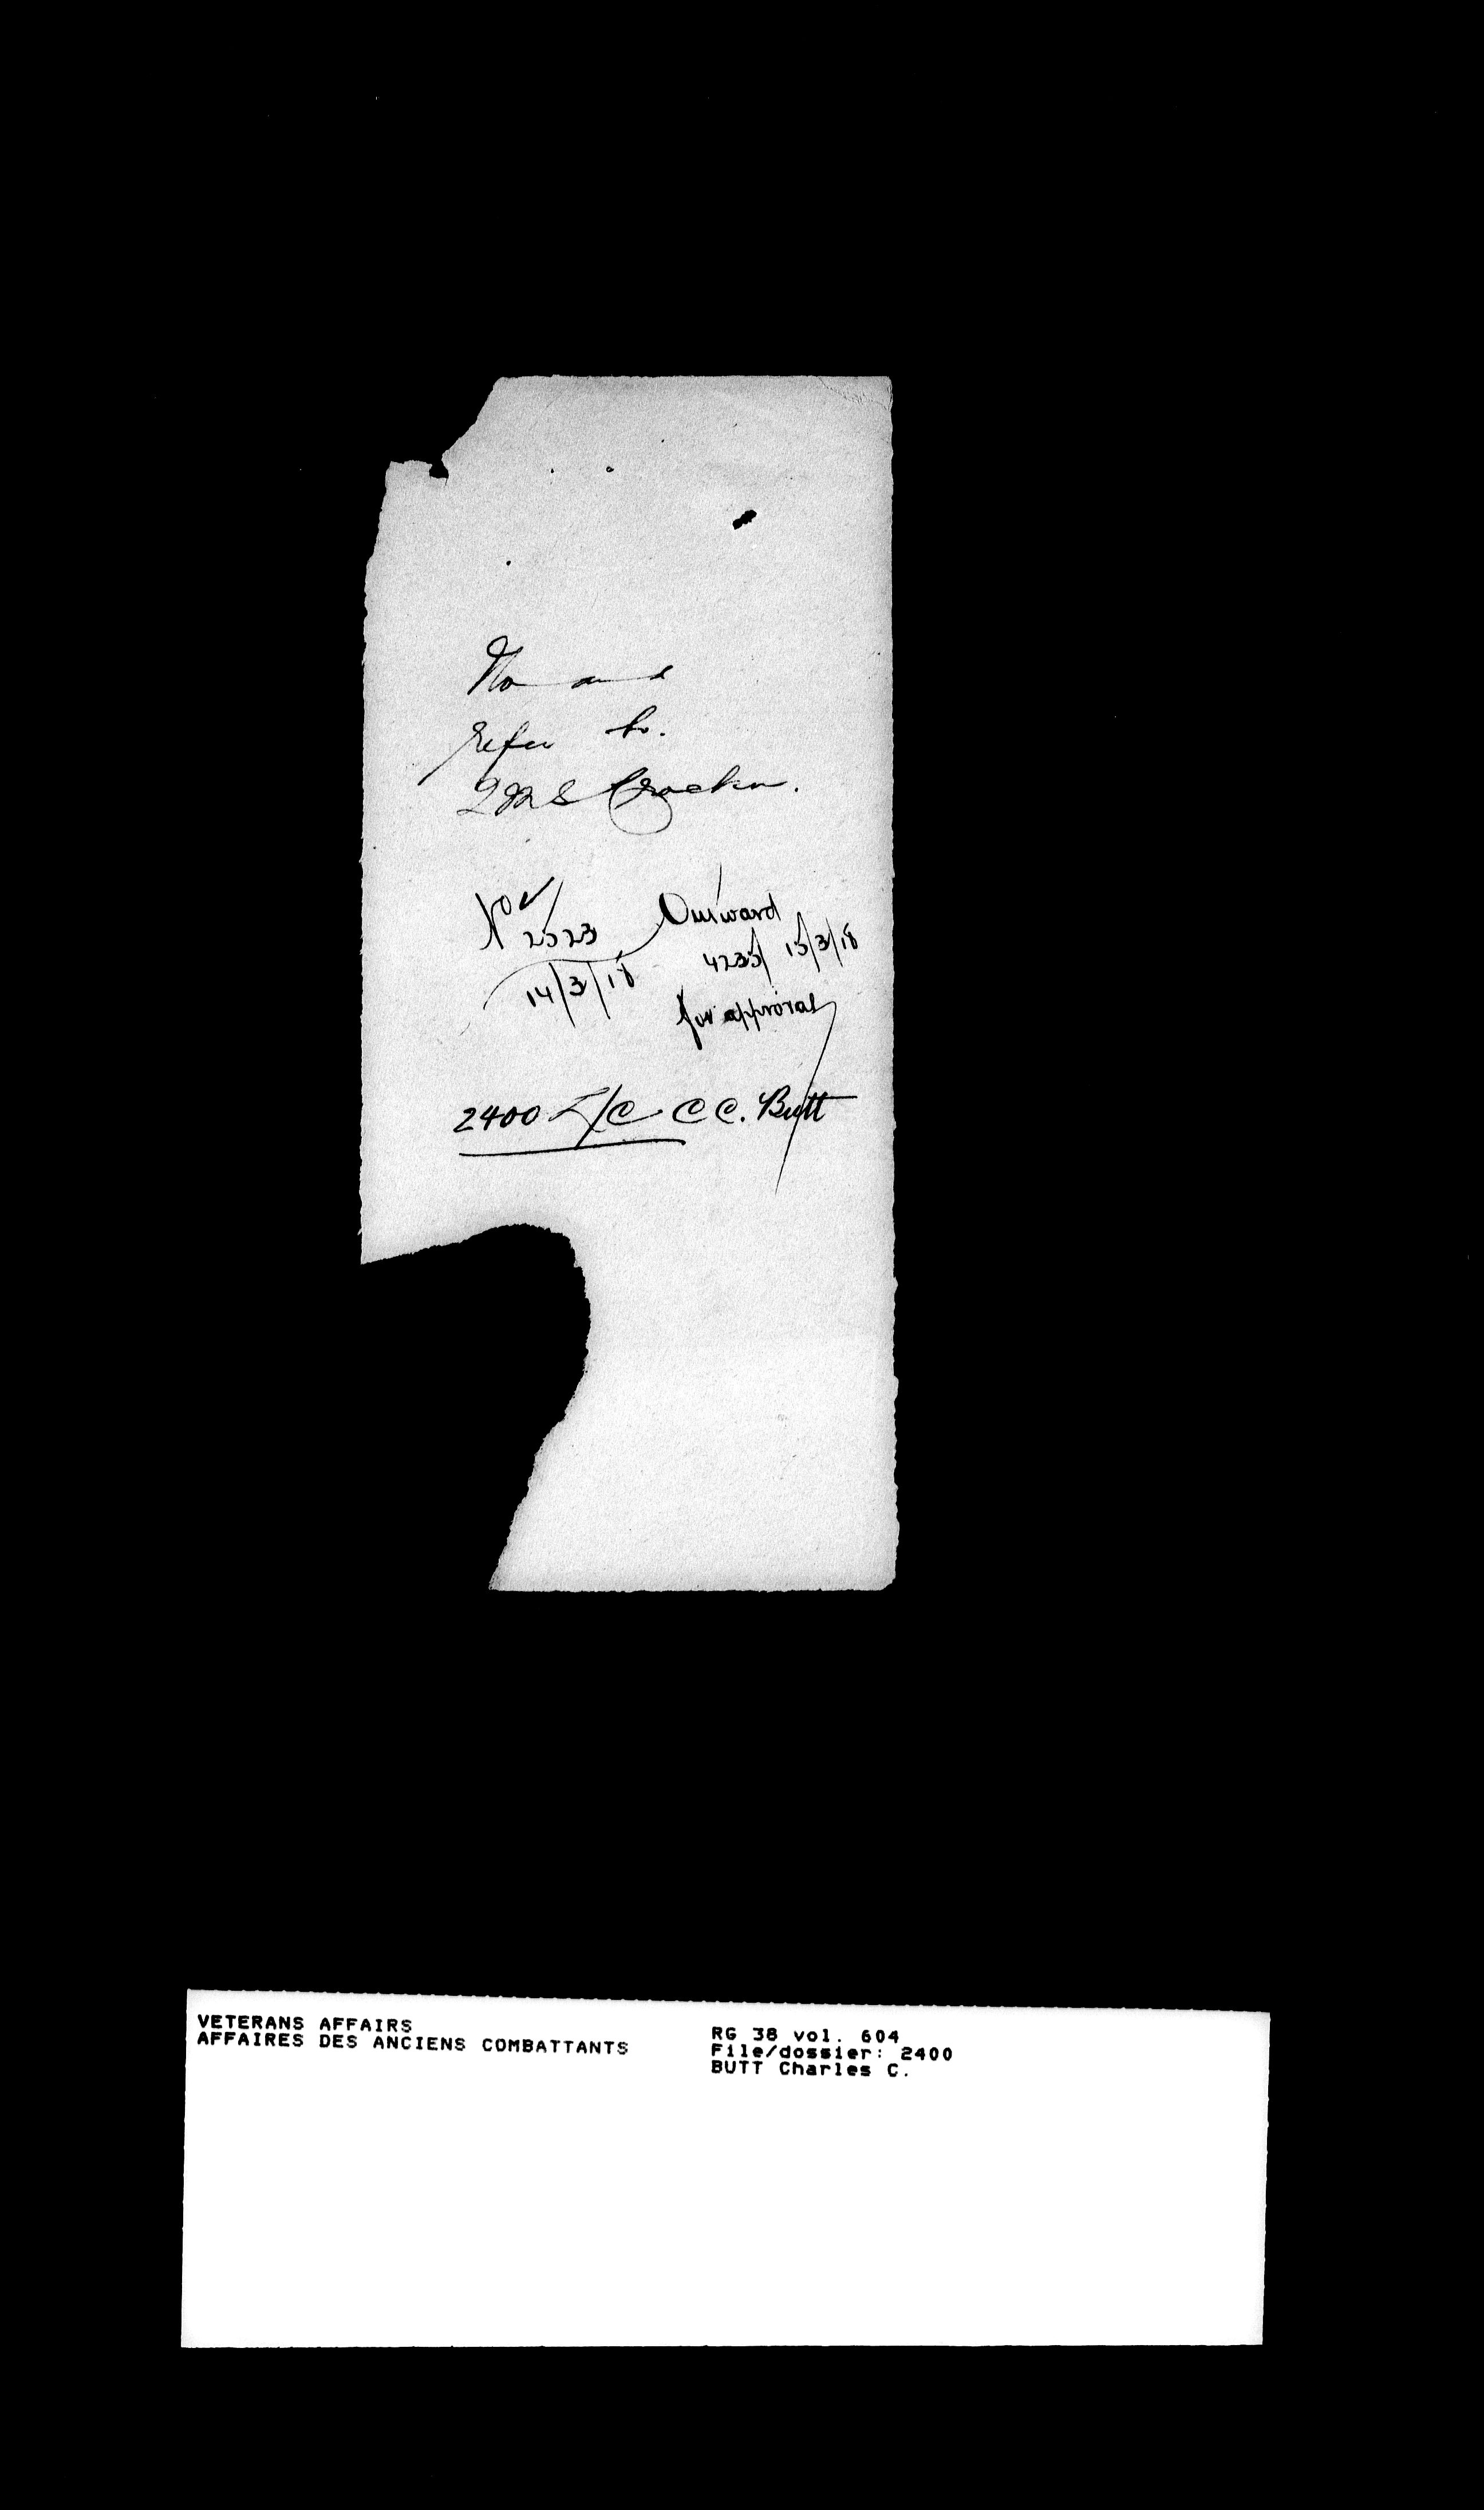 No and
refer to.
QMS
No 2523
14/3/18
Outward
4235/ 15/3/18
for approval
2400 L/C C C. Butt
VETERANS AFFAIRS
AFFAIRES DES ANCIENS COMBATTANTS
RG 38 vol. 604
File/dossier: 2400
BUTT Charles C.